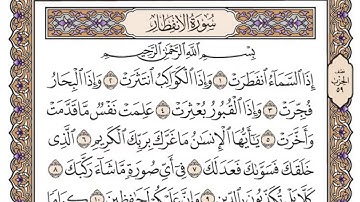 سُورَةُ الانفِطَارِ
بِسْمِ اللَّهِ الرَّحْمَٰنِ الرَّحِيمِ
إِذَا السَّمَاءُ انفَطَرَتْ ١ وَإِذَا الْكَوَاكِبُ انتَثَرَتْ ٢ وَإِذَا الْبِحَارُ
فُجِّرَتْ ٣ وَإِذَا الْقُبُورُ بُعْثِرَتْ ٤ عَلِمَتْ نَفْسٌ مَّا قَدَّمَتْ
وَأَخَّرَتْ ٥ يَا أَيُّهَا الْإِنسَانُ مَا غَرَّكَ بِرَبِّكَ الْكَرِيمِ ٦ الَّذِي
خَلَقَكَ فَسَوَّاكَ فَعَدَلَكَ ٧ فِي أَيِّ صُورَةٍ مَّا شَاءَ رَكَّبَكَ ٨
كَلَّا بَلْ تُكَذِّبُونَ بِالدِّينِ ٩ وَإِنَّ عَلَيْكُمْ لَحَافِظِينَ ١٠ كِرَامًا
الحزب
٥٩